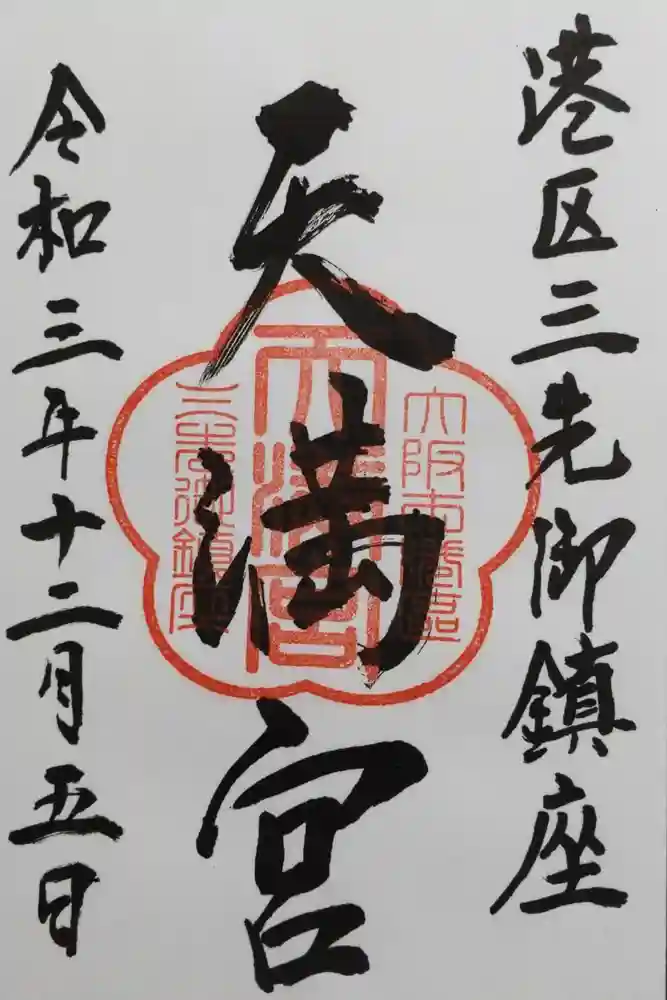 港区三先御鎮座
天満宮
令和三年十二月五日
大阪市港區
天満宮
三先御鎮座